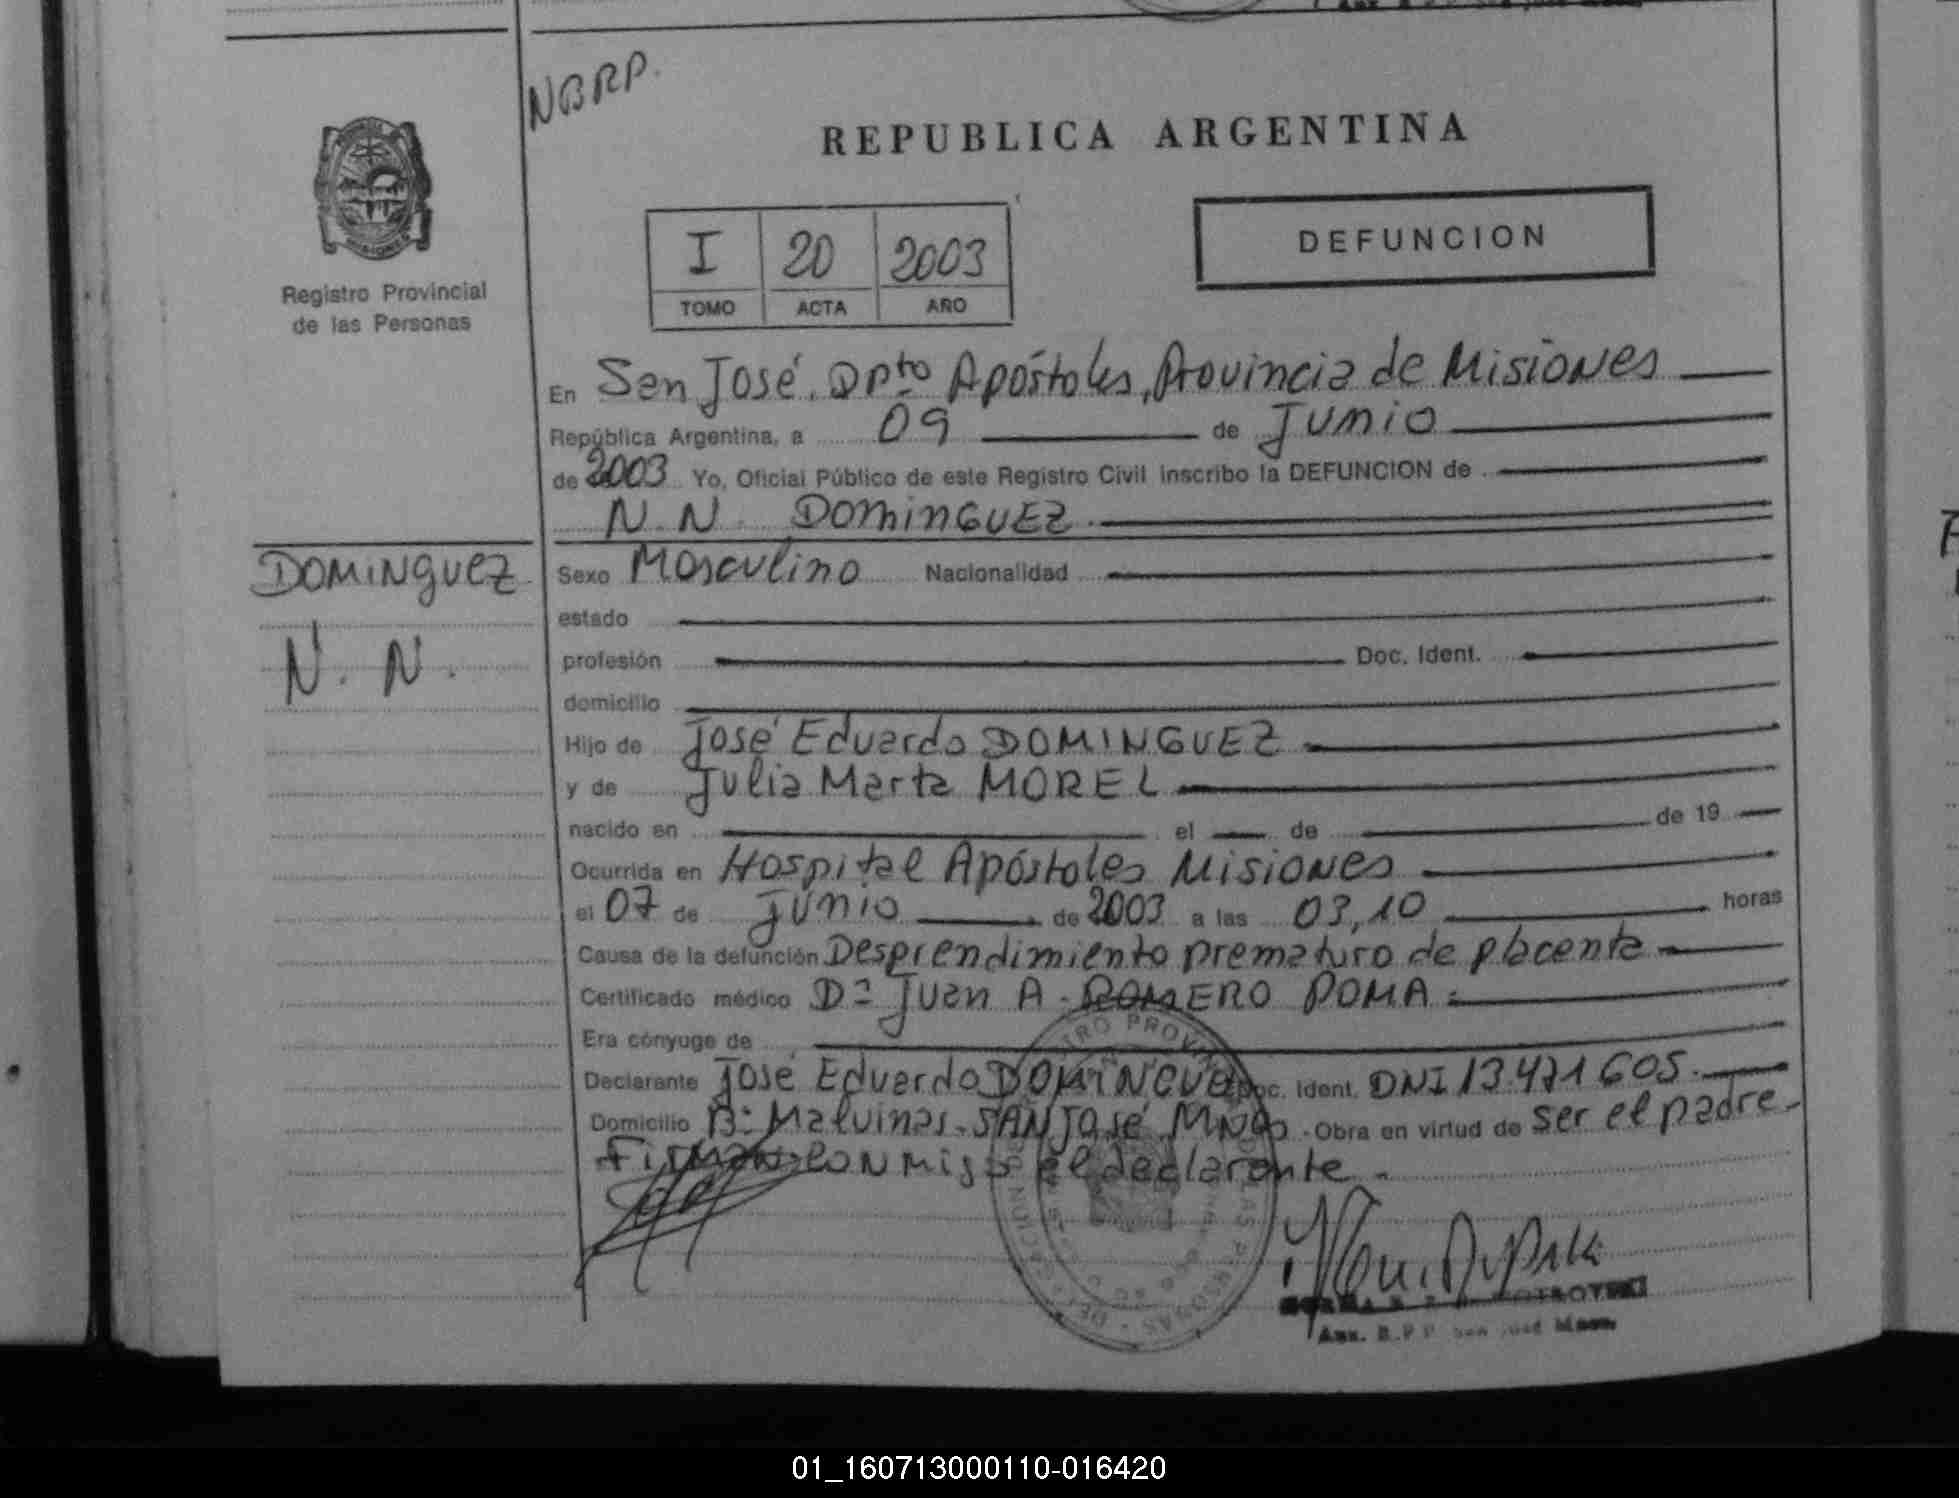 NBRP.
REPUBLICA ARGENTINA
I 20 2003
TOMO ACTA AÑO
DEFUNCION
Registro Provincial
de las Personas
En San José, Dpto Apóstoles, Provincia de Misiones
República Argentina, a 09 de Junio
de 2003 Yo, Oficial Público de este Registro Civil inscribo la DEFUNCION de
N.N. DominGUEZ
DOMiNguez
N. N.
Sexo Masculino Nacionalidad
estado
profesión Doc. Ident.
domicilio
Hijo de José Eduardo DOMINGUEZ
y de Julia Marta MOREL
nacido en el de de 19
Ocurrida en Hospital Apóstoles Misiones
el 07 de Junio de 2003 a las 03,10 horas
Causa de la defunción Desprendimiento prematuro de placenta
Certificado médico Dr Juan A. ROMERO POMA
Era cónyuge de
Declarante José Eduardo DOMINGUEZ Doc. Ident. DNI 13.471605.
Domicilio B: Malvinas. SAN José Mnes. Obra en virtud de ser el padre.
Firman conmigo el declarante.
Aux. R.P.P. San José Mnes.
01_160713000110-016420